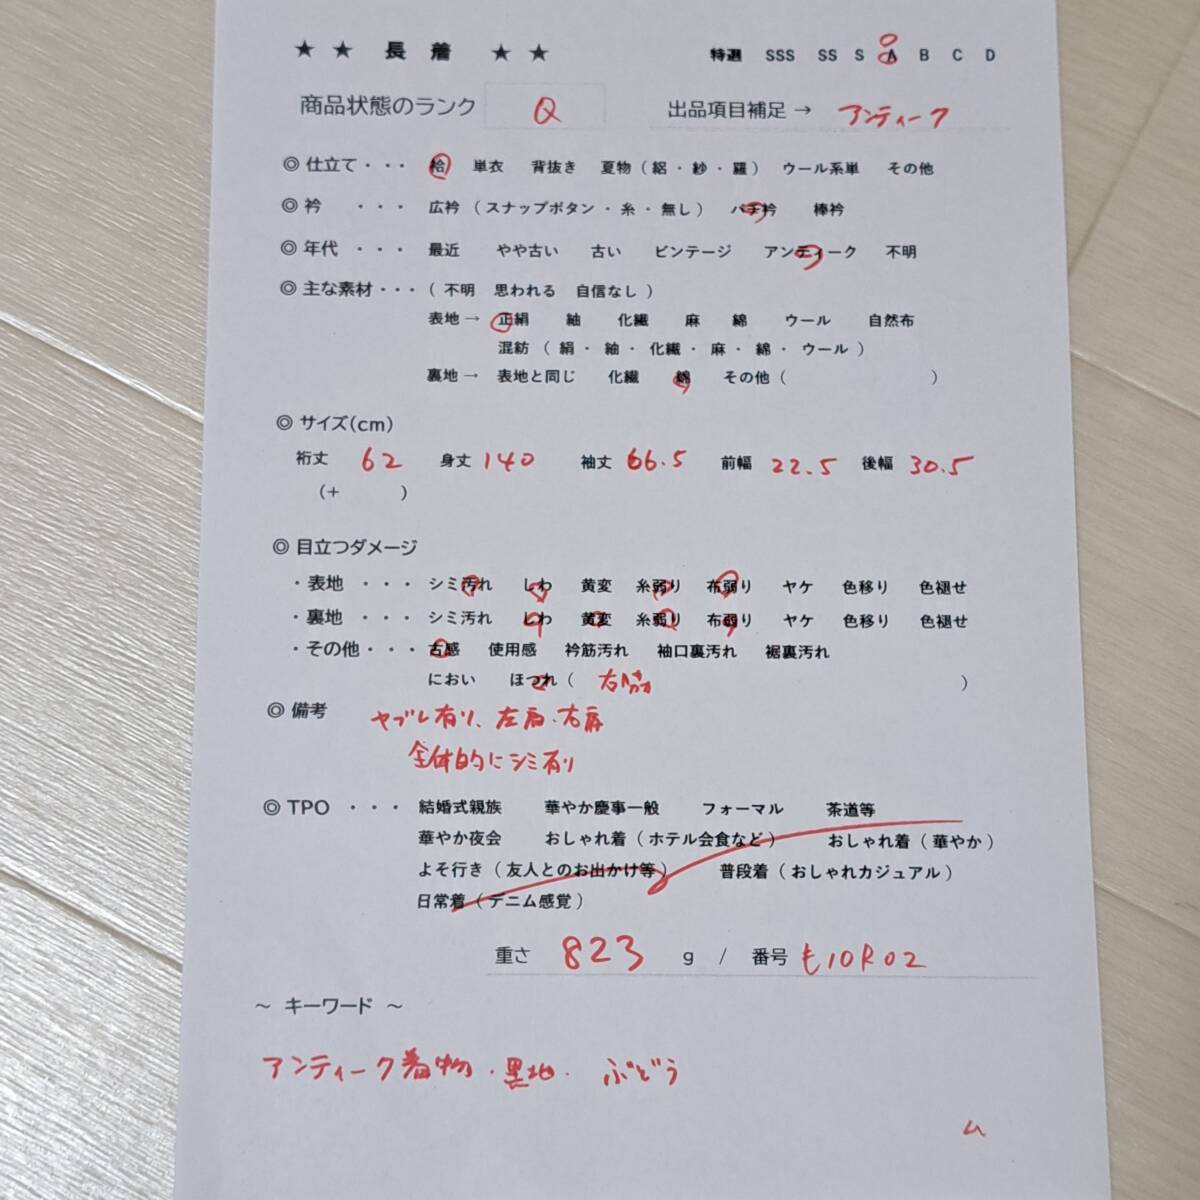 ★ ★ 長 着 ★ ★ 特選 SSS SS S A B C D
商品状態のランク Q 出品項目補足 → アンティーク
◎ 仕立て・・・ 袷 単衣 背抜き 夏物（絽・紗・羅） ウール系単 その他
◎ 衿 ・・・ 広衿（スナップボタン・糸・無し） バチ衿 棒衿
◎ 年代 ・・・ 最近 やや古い 古い ビンテージ アンティーク 不明
◎ 主な素材・・・（ 不明 思われる 自信なし ）
表地 → 正絹 紬 化繊 麻 綿 ウール 自然布
混紡（ 絹・紬・化繊・麻・綿・ウール ）
裏地 → 表地と同じ 化繊 綿 その他（ ）
◎ サイズ(cm)
裄丈 62 身丈 140 袖丈 66.5 前幅 22.5 後幅 30.5
(+ )
◎ 目立つダメージ
・表地 ・・・ シミ汚れ しわ 黄変 糸弱り 布弱り ヤケ 色移り 色褪せ
・裏地 ・・・ シミ汚れ しわ 黄変 糸弱り 布弱り ヤケ 色移り 色褪せ
・その他・・・ 古感 使用感 衿筋汚れ 袖口裏汚れ 裾裏汚れ
におい ほつれ（ 右脇 ）
◎ 備考 ヤブレ有り、左肩・右肩
全体的にシミ有り
◎ TPO ・・・ 結婚式親族 華やか慶事一般 フォーマル 茶道等
華やか夜会 おしゃれ着（ホテル会食など） おしゃれ着（華やか）
よそ行き（友人とのお出かけ等） 普段着（おしゃれカジュアル）
日常着（デニム感覚）
重さ 823 g / 番号 も10R02
～ キーワード ～
アンティーク着物・黒地・ ぶどう
ム